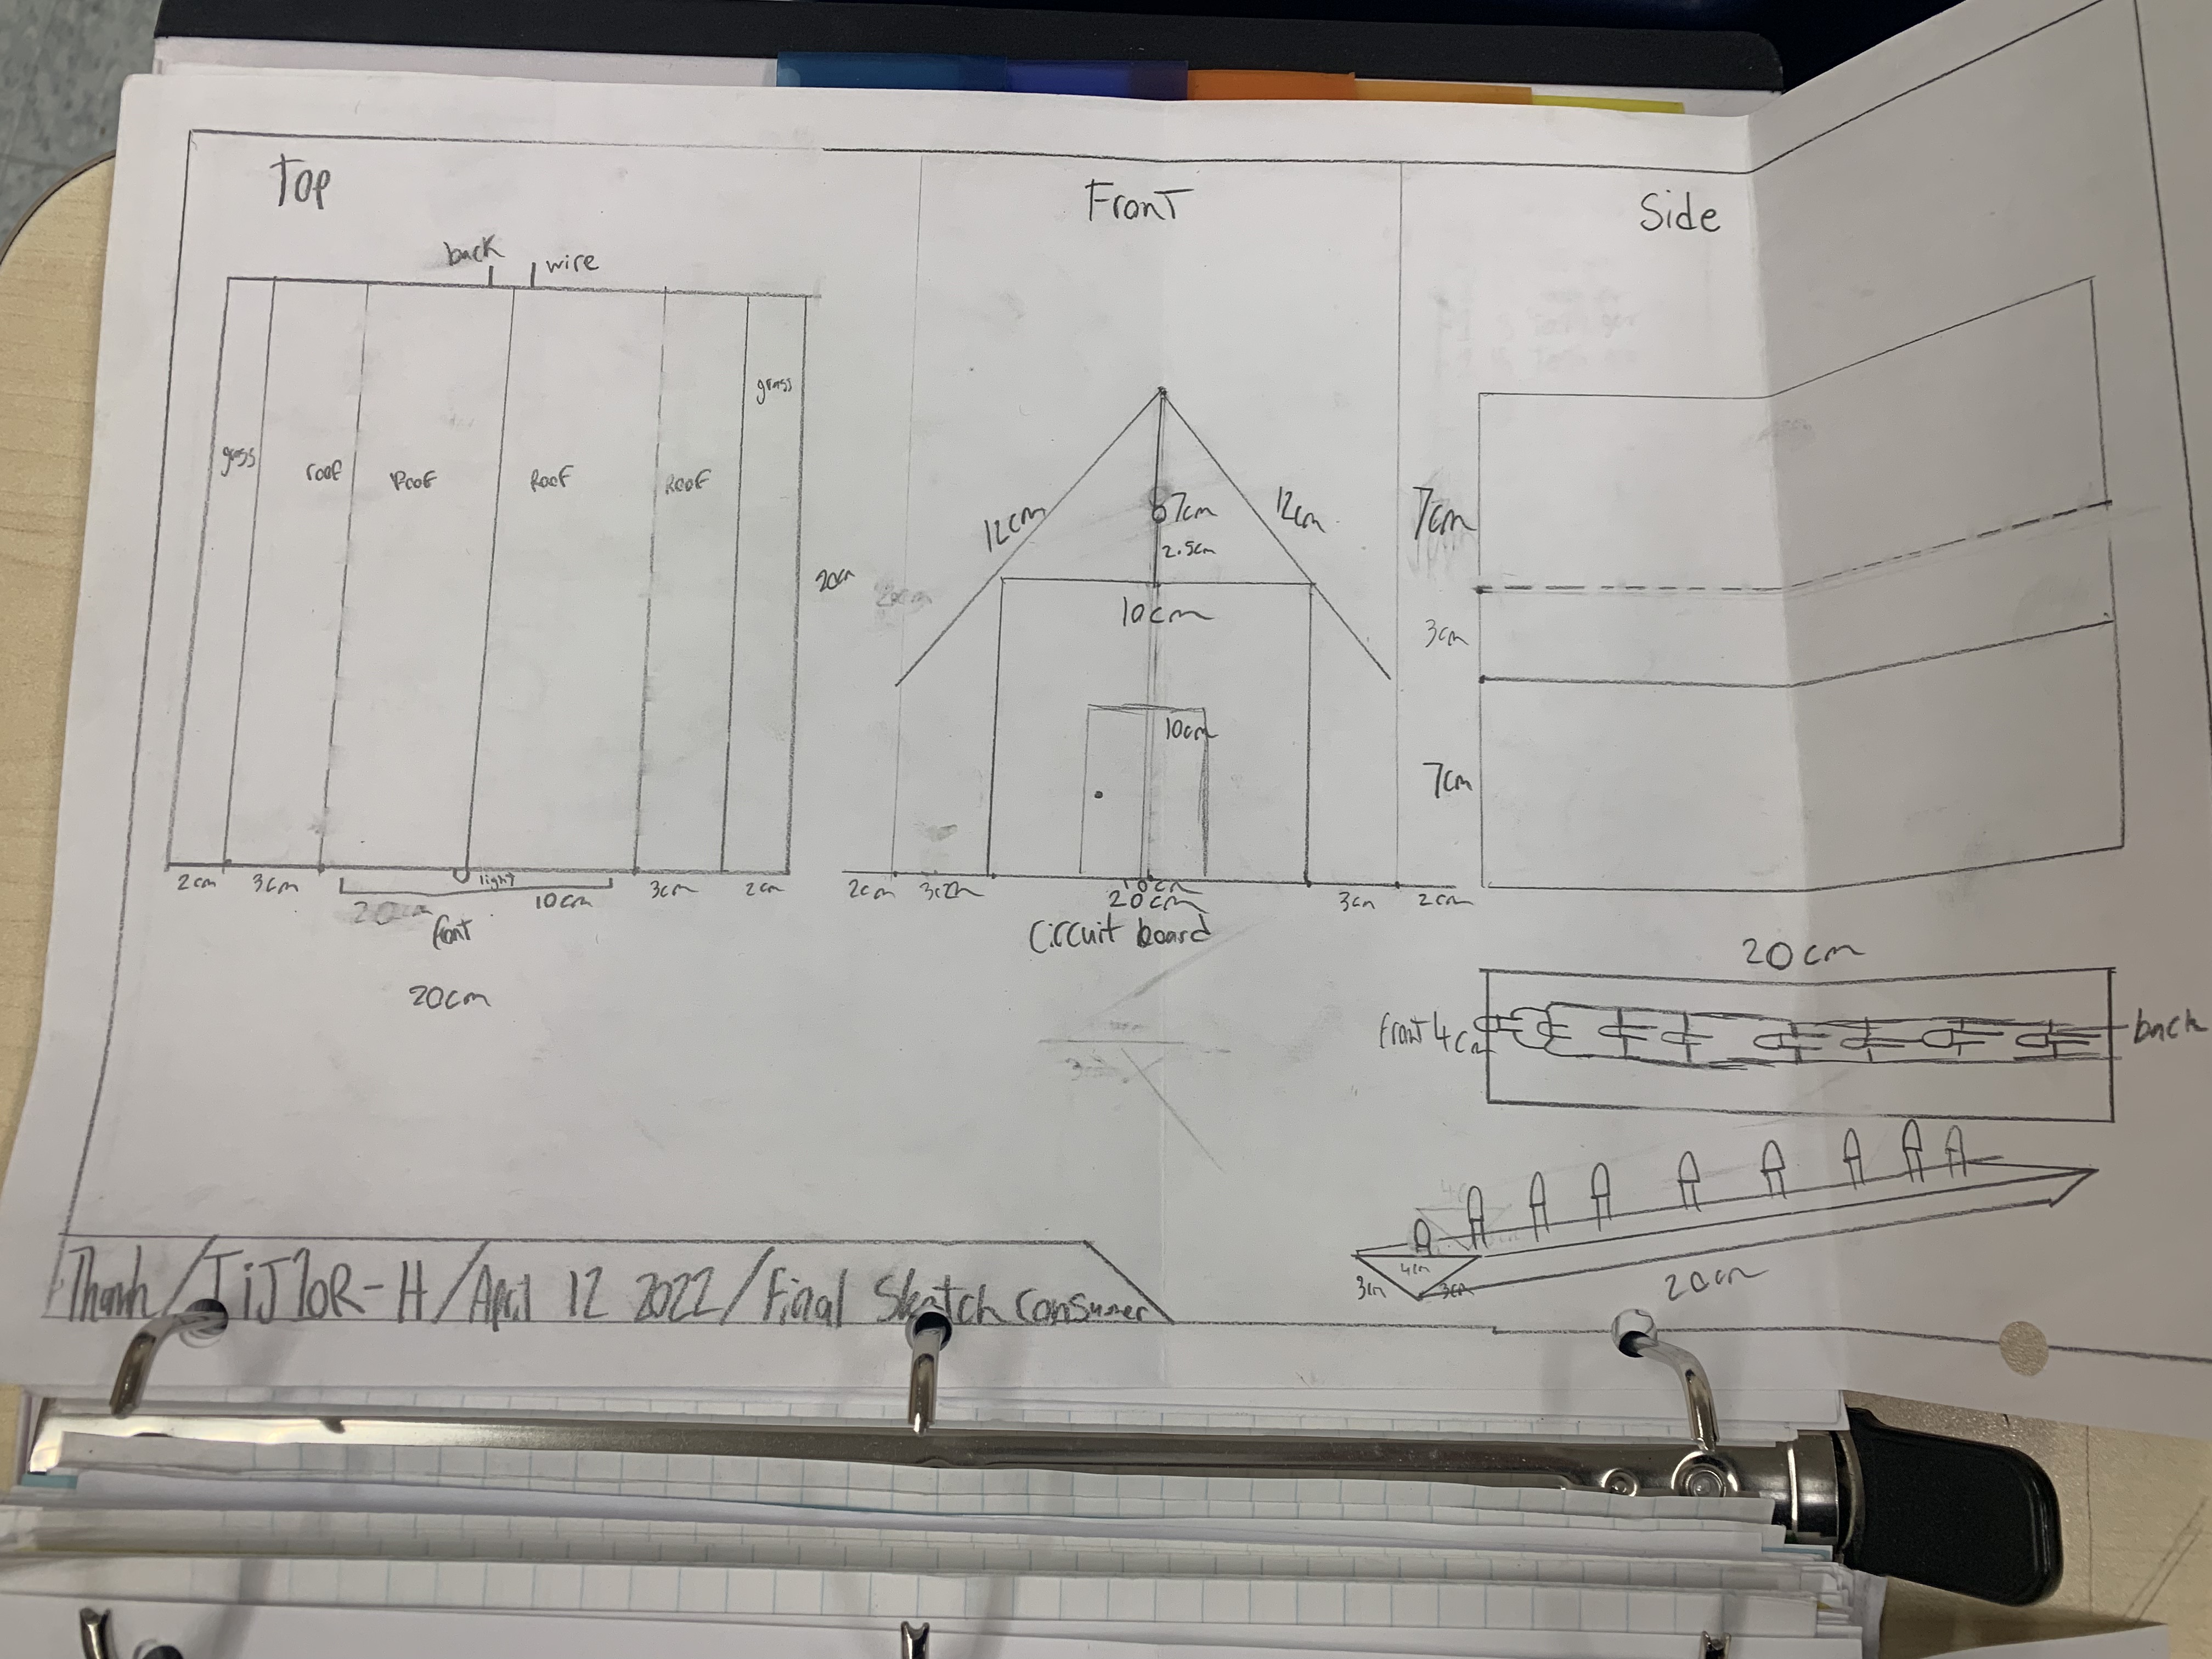 Top
back
wire
grass
roof
Roof
Roof
Roof
grass
20cm
2cm
3cm
light
10cm
3cm
2cm
20cm
front
20cm
Front
12cm
7cm
12cm
2.5cm
20cm
10cm
10cm
2cm
3cm
10cm
20cm
3cm
2cm
Circuit board
Side
7cm
3cm
7cm
20cm
front 4cm
back
4cm
3cm
3cm
20cm
Thanh/TiJ1oR-H/April 12 2022/Final Sketch Consumer